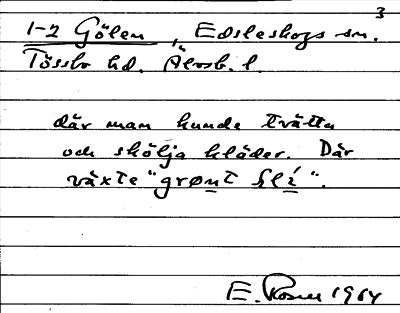 3
1-2 Gölen, Edsleskogs sn.
Tössbo hd. Älvsb. l.
där man kunde tvätta
och skölja kläder. Där
växte "grønt sli".
E. Rosell 1964